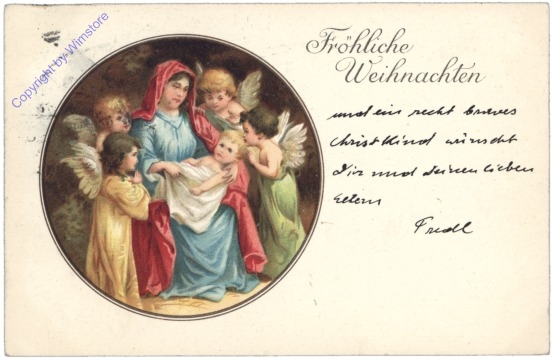 Copyright by Wimstore
Fröhliche
Weihnachten
und ein recht braves
Christkind wünscht
Dir und deinen lieben
Eltern
Friedl